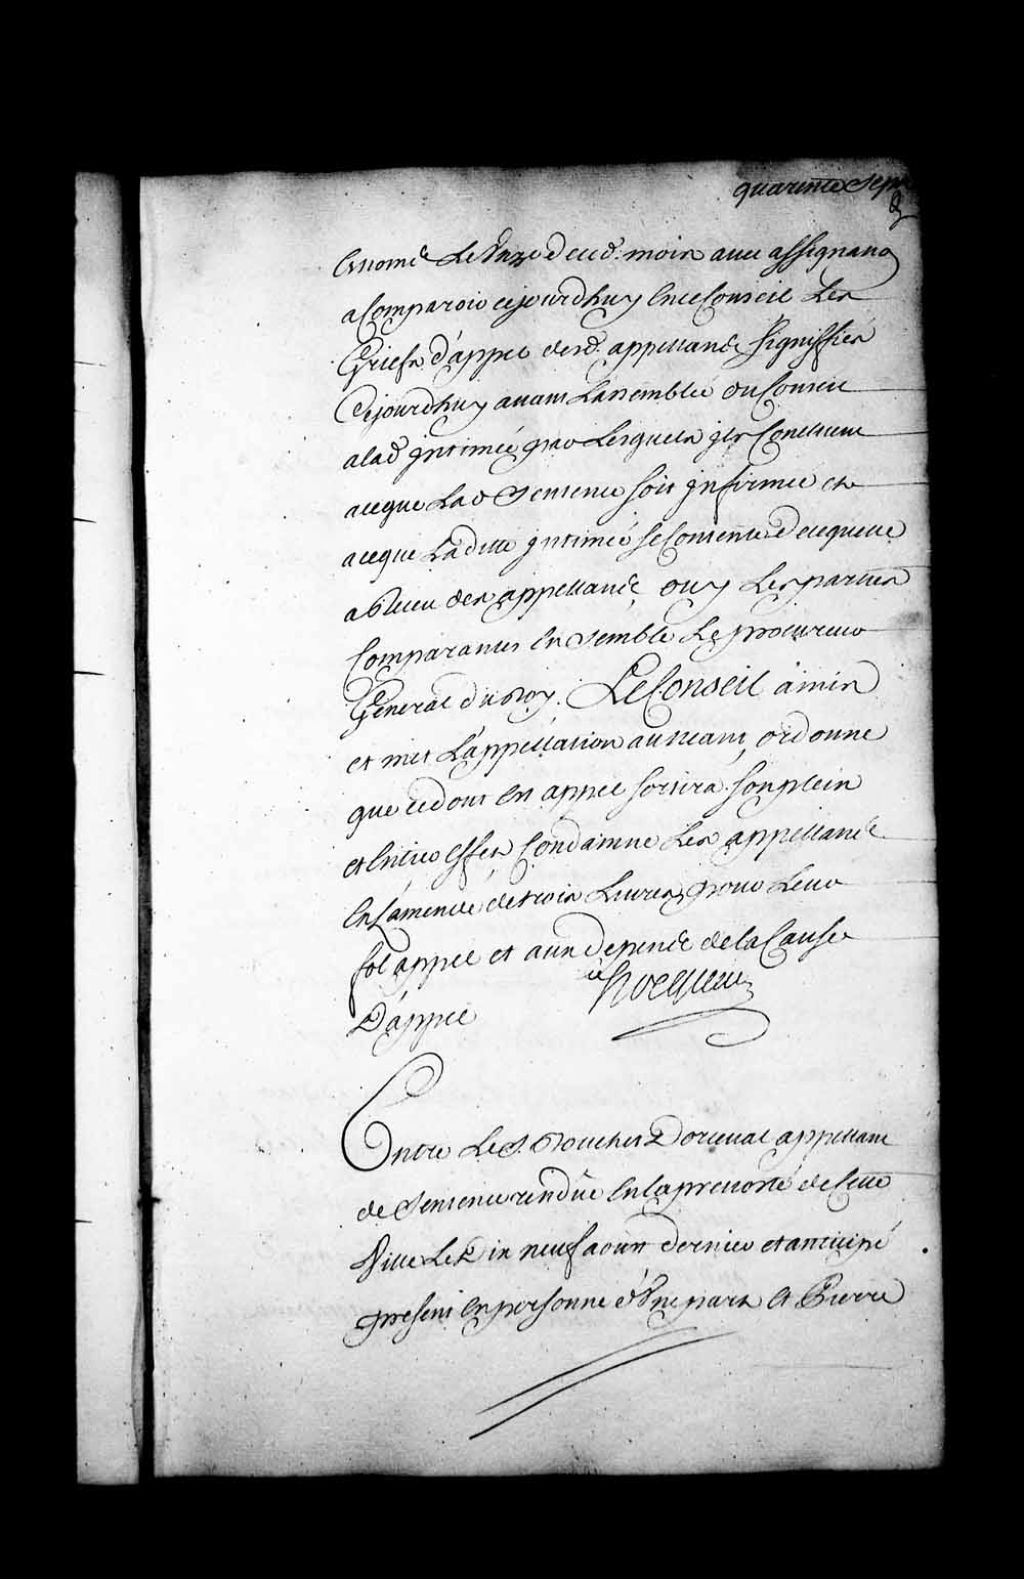 quarente Sept
Esnomé Le Onze decd. mois avec assignaon
a Comparoir cejourdhuy En ce Conseil Les
Griefs d'appel desd. appellands Signiffiés
Cejourdhuy avant L'assemblée du Conseil
a lad jntimée par Lesquels jls Concluent
aceque Lad Sentence soit jnfirmée et
aceque Ladite jntimée se Contente de
des appellands, ouy Les parties
Comparantes Ensemble Le procureur
General du Roy. Le Conseil a mis
et met L'appellation au neant, ordonne
que ce dont En appel sortira son plein
et Entier Effet Condamne Les appellands
En L'amende de trois Livres pour Leur
fol appel et aux depends de la Cause
D'appel
hocquart
Entre Le S. Rouchet Dorceval appellant
de Sentence rendüe En la prevosté de Cette
Ville Le Dix neuf aoust dernier et anticipé
present En personne d'Une part Et Pierre